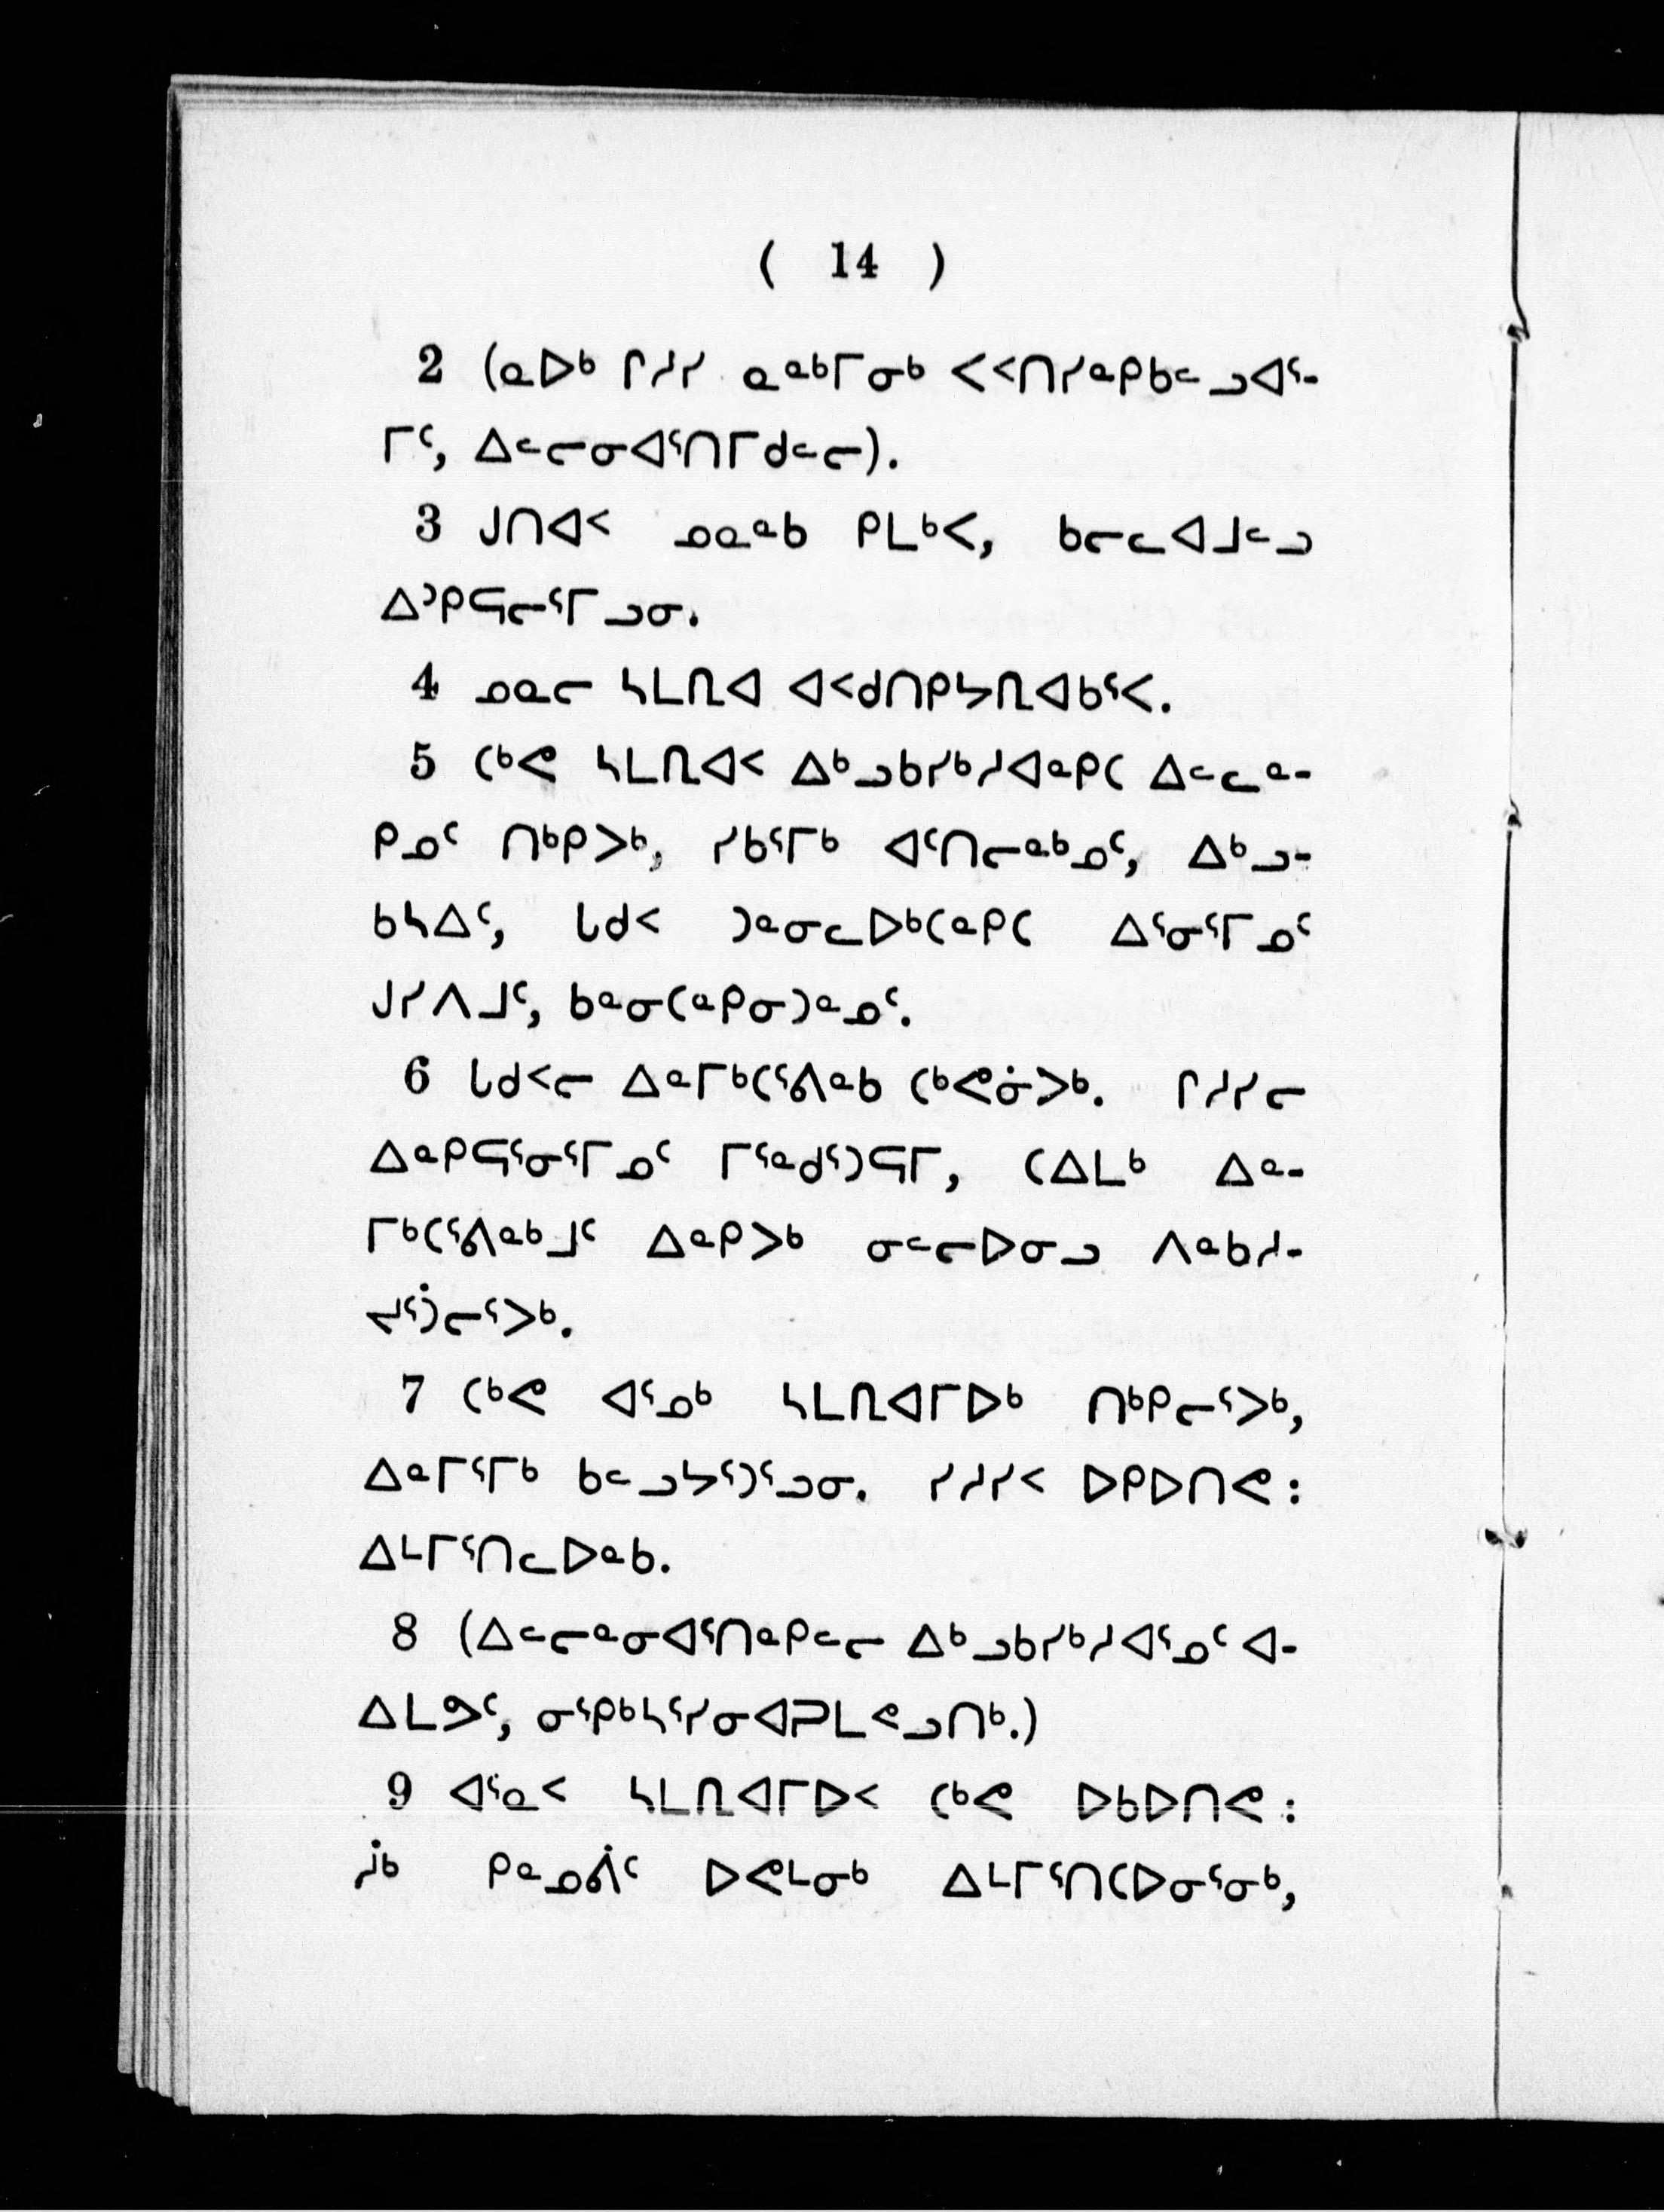 ( 14 )
2 (ᓇᐅᒃ ᒋᓱᓯ ᓇᓐᒃᒥᓂᒃ ᐸᑉᐸᑎᓯᓐᑭᑲᓪᓗᐊᕐ-
ᒥᑦ, ᐃᓪᓕᓂᐊᕐᑎᒥᑯᓪᓕ).
3 ᒍᑎᐊᑉ ᓄᓇᓐᑲ ᑭᒪᒃᐸ, ᑲᓕᓚᐊᒧᓪᓗ
ᐃᕗᑭᕋᓕᕐᒥᓗᓂ.
4 ᓄᓇᓕ ᓴᒪᕆᐊ ᐊᑉᑯᑎᑭᔭᕆᐊᑲᕐᐸ.
5 ᑕᒃᕙ ᓴᒪᕆᐊᑉ ᐃᒃᓗᑲᓯᒃᓱᐊᓐᑭᑕ ᐃᓪᓚᓐ-
ᑭᓄᑦ ᑎᒃᑭᐳᒃ, ᓯᑲᕐᒥᒃ ᐊᑦᑎᓕᓐᒃᓄᑦ, ᐃᒃᓗ-
ᑲᓴᐃᑦ, ᓭᑯᑉ ᑐᓐᓂᓚᐅᒃᑕᓐᑭᑕ ᐃᕐᓂᕐᒥᓄᑦ
ᒍᓯᐱᒧᑦ, ᑲᓐᓂᑕᓐᑭᓂᑐᓐᓄᑦ.
6 ᓭᑯᑉᓕ ᐃᓐᒥᒃᑕᕐᕕᓐᑲ ᑕᒃᕙᓃᐳᒃ. ᒋᓱᓯᓕ
ᐃᓐᑭᕋᕐᓂᕐᒥᓄᑦ ᒥᕐᓐᑯᕐᑐᕋᒥ, ᑕᐃᒪᒃ ᐃᓐ-
ᒥᒃᑕᕐᕕᓐᒃᒧᑦ ᐃᓐᑭᐳᒃ ᓂᓪᓕᐅᓂᓗ ᐱᓐᑲᓱ-
ᔪᕐᑑᓕᕐᐳᒃ.
7 ᑕᒃᕙ ᐊᕐᓄᒃ ᓴᒪᕆᐊᒥᐅᒃ ᑎᒃᑭᓕᕐᐳᒃ,
ᐃᓐᒥᕐᒥᒃ ᑲᓪᓗᔭᕐᑐᕐᓗᓂ. ᓯᓱᓯᑉ ᐅᑭᐅᑎᕙ:
ᐃᒻᒥᕐᑎᓚᐅᓐᑲ.
8 (ᐃᓪᓕᓐᓂᐊᕐᑎᓐᑭᓪᓕ ᐃᒃᓗᑲᓯᒃᓱᐊᕐᓄᑦ ᐊ-
ᐃᒪᕗᑦ, ᓂᕐᑭᒃᓴᕐᓯᓂᐊᕈᒪᕝᓗᑎᒃ.)
9 ᐊᕐᓇᑉ ᓴᒪᕆᐊᒥᐅᑉ ᑕᒃᕙ ᐅᑲᐅᑎᕙ:
ᓲᒃ ᑭᓐᓄᕖᑦ ᐅᕙᒻᓂᒃ ᐃᒻᒥᕐᑎᑕᐅᓂᕐᓂᒃ,